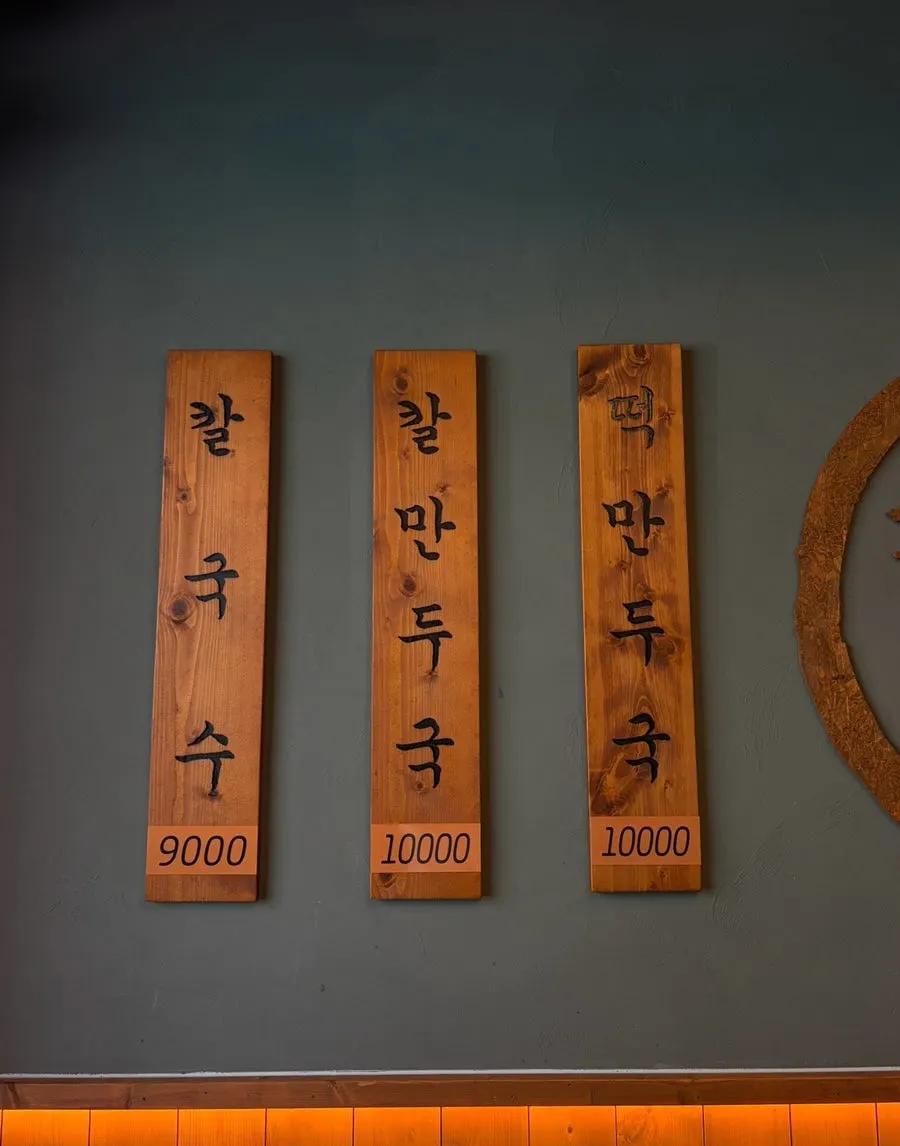 칼국수
9000
칼만두국
10000
떡만두국
10000